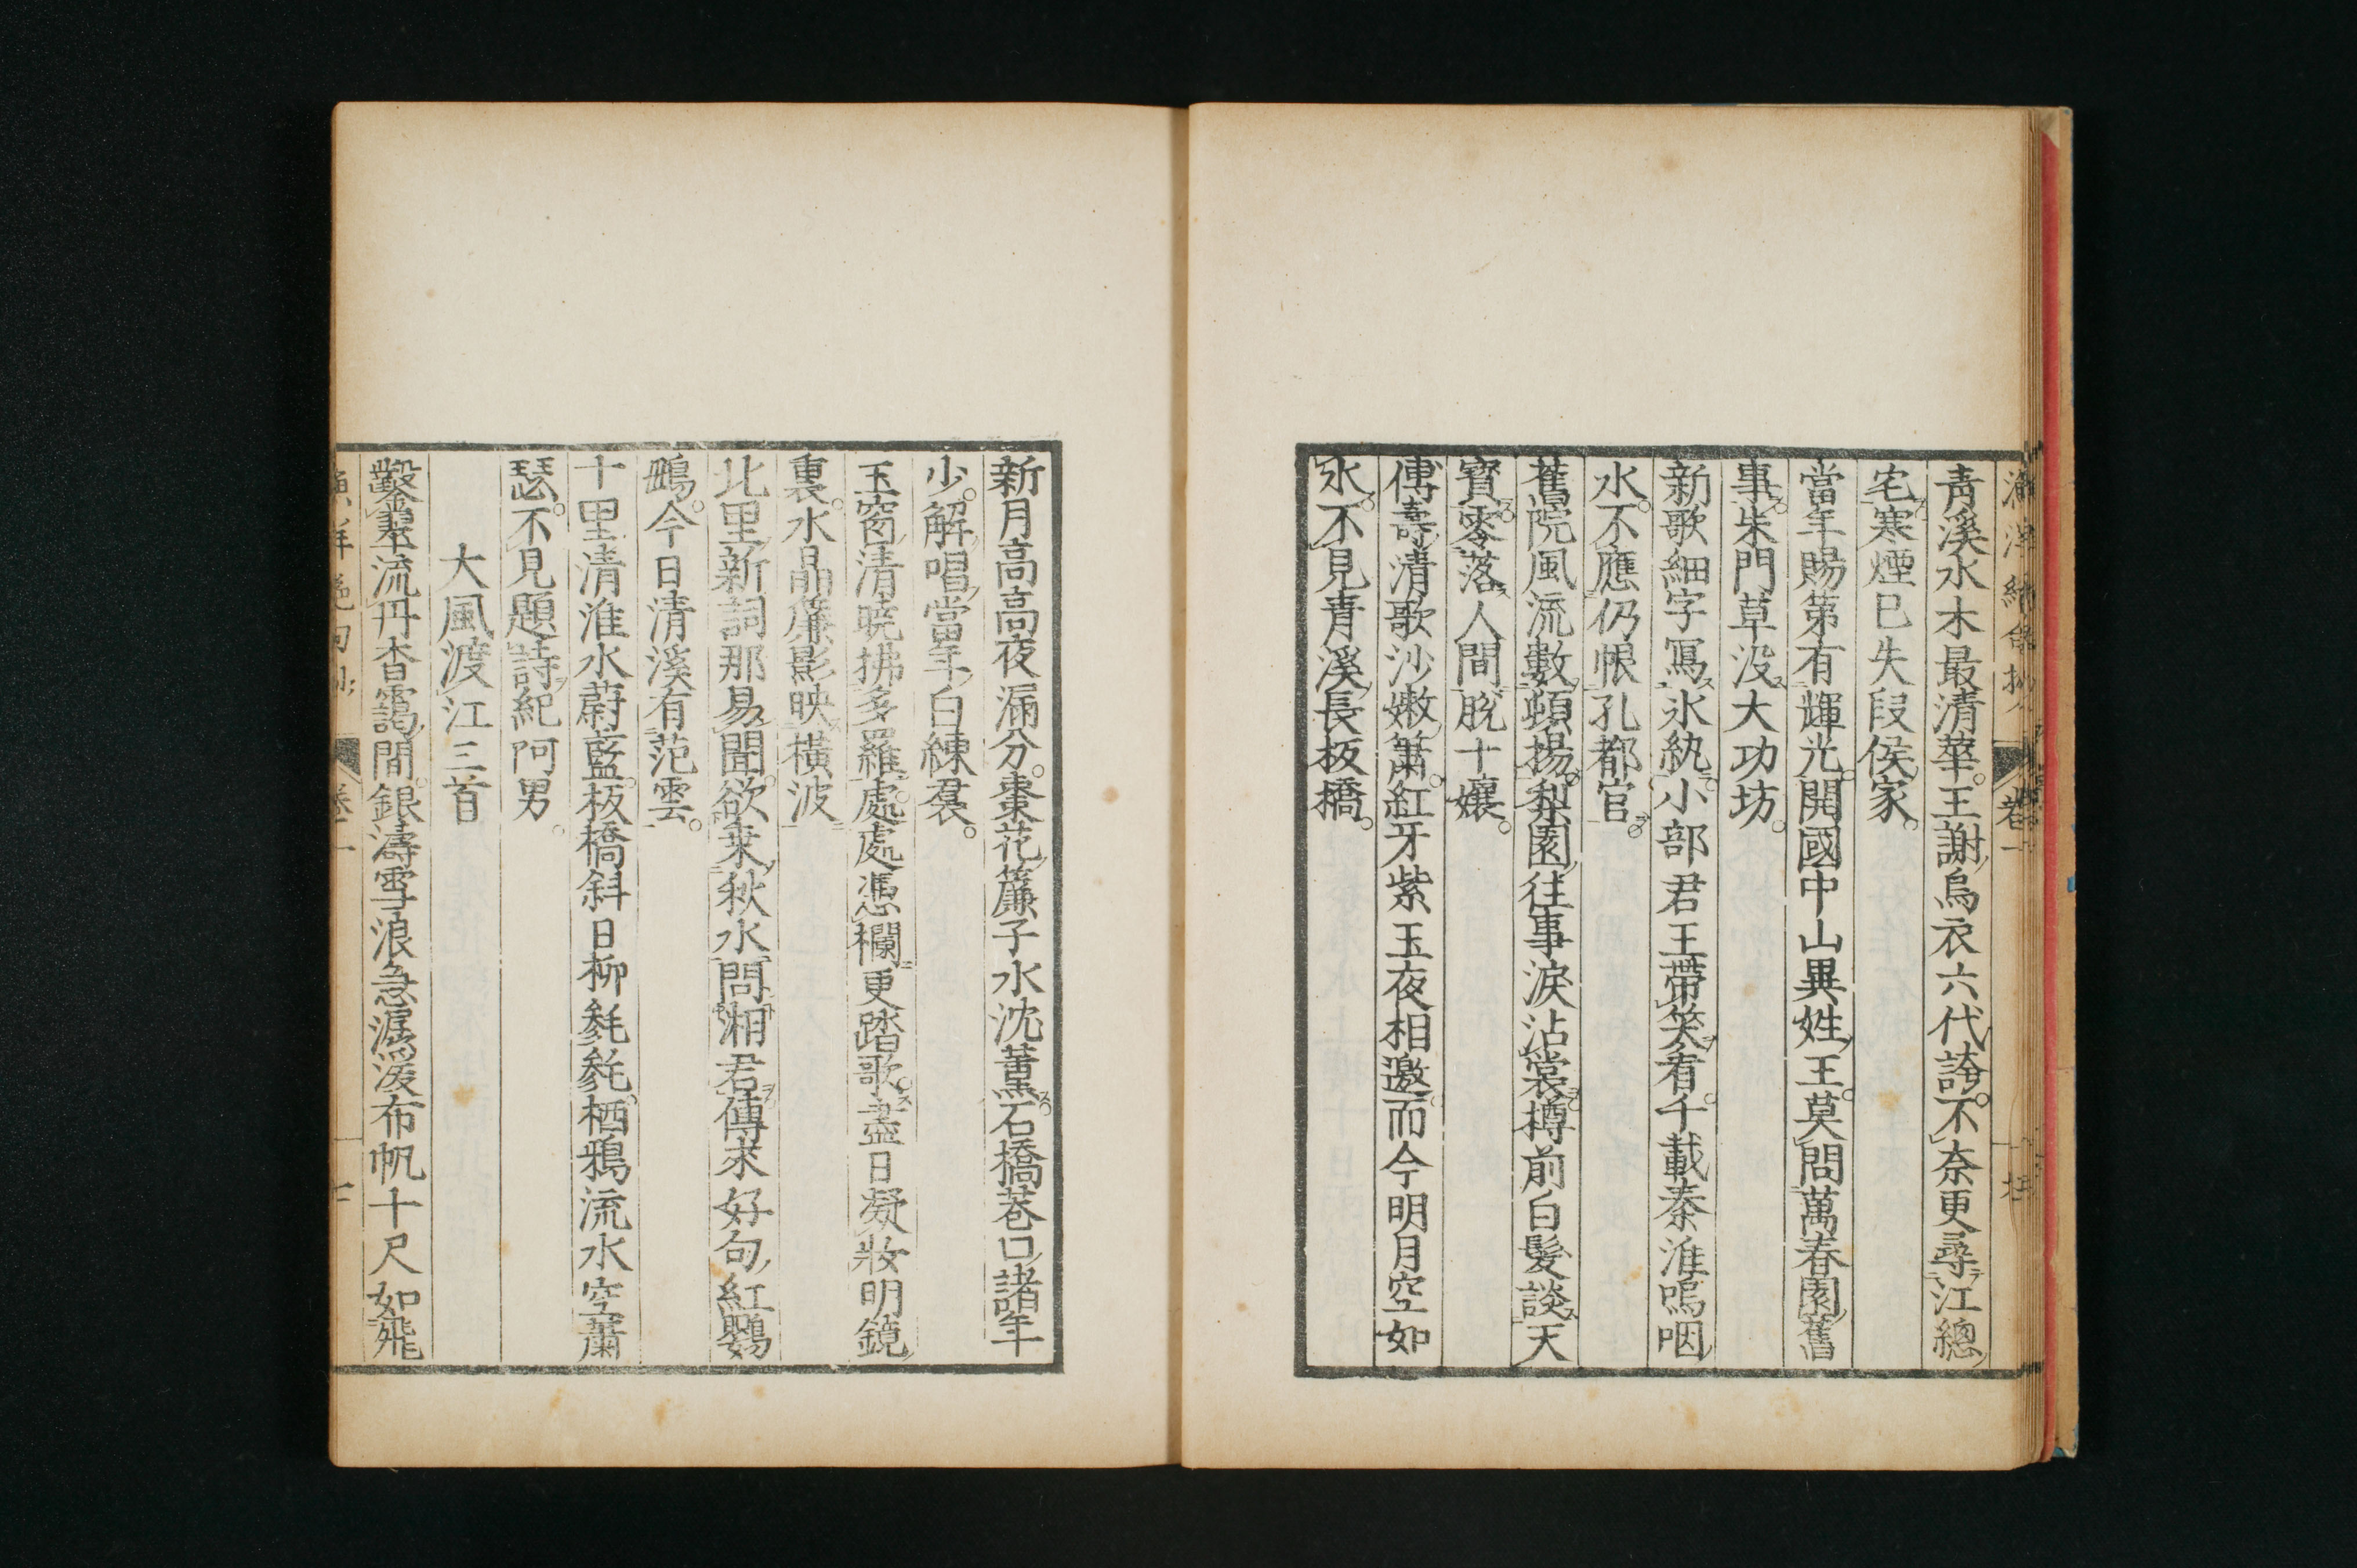 靑溪水木最清華王謝烏衣六代誇不奈更尋江總
宅寒煙已失段侯家
當年賜第有輝光開國中山異姓王莫問萬春園舊
事朱門草沒大功坊
新歌細字寫氷紈小部君王帶笑看千載秦淮嗚咽
水不應仍恨孔都官
舊院風流數頓揚梨園往事淚沾裳樽前白髮談天
寶零落人間脫十孃
傅壽清歌沙嫩簫紅牙紫玉夜相邀而今明月空如
水不見青溪長板橋
新月高高夜漏分棗花簾子水沈薰石橋巷口諸年
少解唱當年白練裙
玉窗清曉拂多羅處處憑欄更踏歌盡日凝妝明鏡
裏水晶簾影映橫波
北里新詞那易聞欲乗秋水問湘君傳來好句紅鸚
鵡今日清溪有范雲
十里清淮水蔚藍板橋斜日柳毿毿栖鴉流水空蕭
瑟不見題詩紀阿男
大風渡江三首
鑿翠流丹杳靄間銀濤雪浪急潺湲布帆十尺如飛
卷一